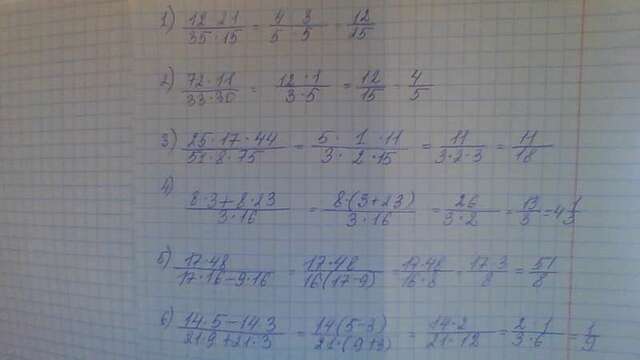 1) 12 · 21 / 35 · 15 = 4 · 3 / 5 · 5 = 12 / 25
2) 72 · 11 / 33 · 30 = 12 · 1 / 3 · 5 = 12 / 15 = 4 / 5
3) 25 · 17 · 44 / 51 · 8 · 75 = 5 · 1 · 11 / 3 · 2 · 15 = 11 / 3 · 2 · 3 = 11 / 18
4) 8 · 3 + 8 · 23 / 3 · 16 = 8 · (3 + 23) / 3 · 16 = 26 / 3 · 2 = 13 / 3 = 4 1/3
5) 17 · 48 / 17 · 16 - 9 · 16 = 17 · 48 / 16 (17 - 9) = 17 · 48 / 16 · 8 = 17 · 3 / 8 = 51 / 8
6) 14 · 5 - 14 · 3 / 21 · 9 + 21 · 3 = 14 (5 - 3) / 21 · (9 + 3) = 14 · 2 / 21 · 12 = 2 · 1 / 3 · 6 = 1 / 9